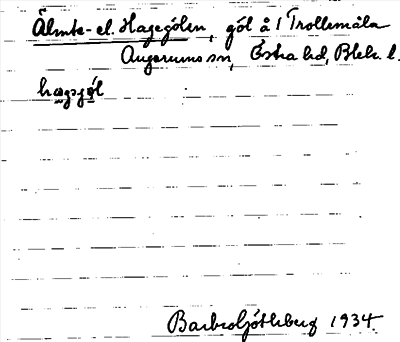 Älmte- el. Hagegölen, göl å 1 Trollemåla
Augerums sn, Östra hd, Blek. l.
hagsgöl
Barbro Götlberg 1934